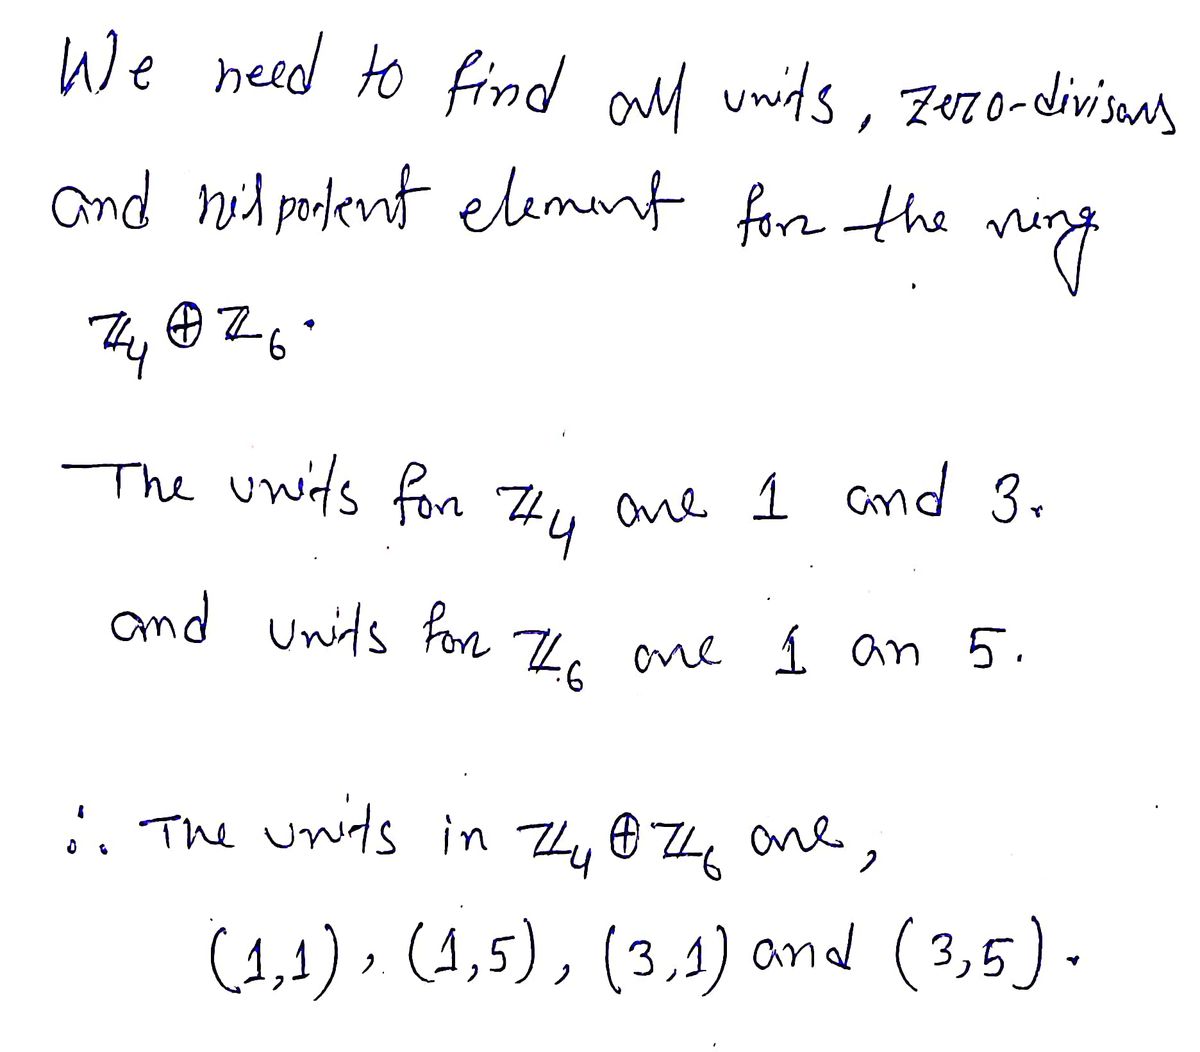 We need to find all units, zero-divisors
and nilpotent element for the ring
ℤ₄ ⊕ ℤ₆.
The units for ℤ₄ are 1 and 3.
and units for ℤ₆ are 1 an 5.
∴ The units in ℤ₄ ⊕ ℤ₆ are,
(1,1), (1,5), (3,1) and (3,5).